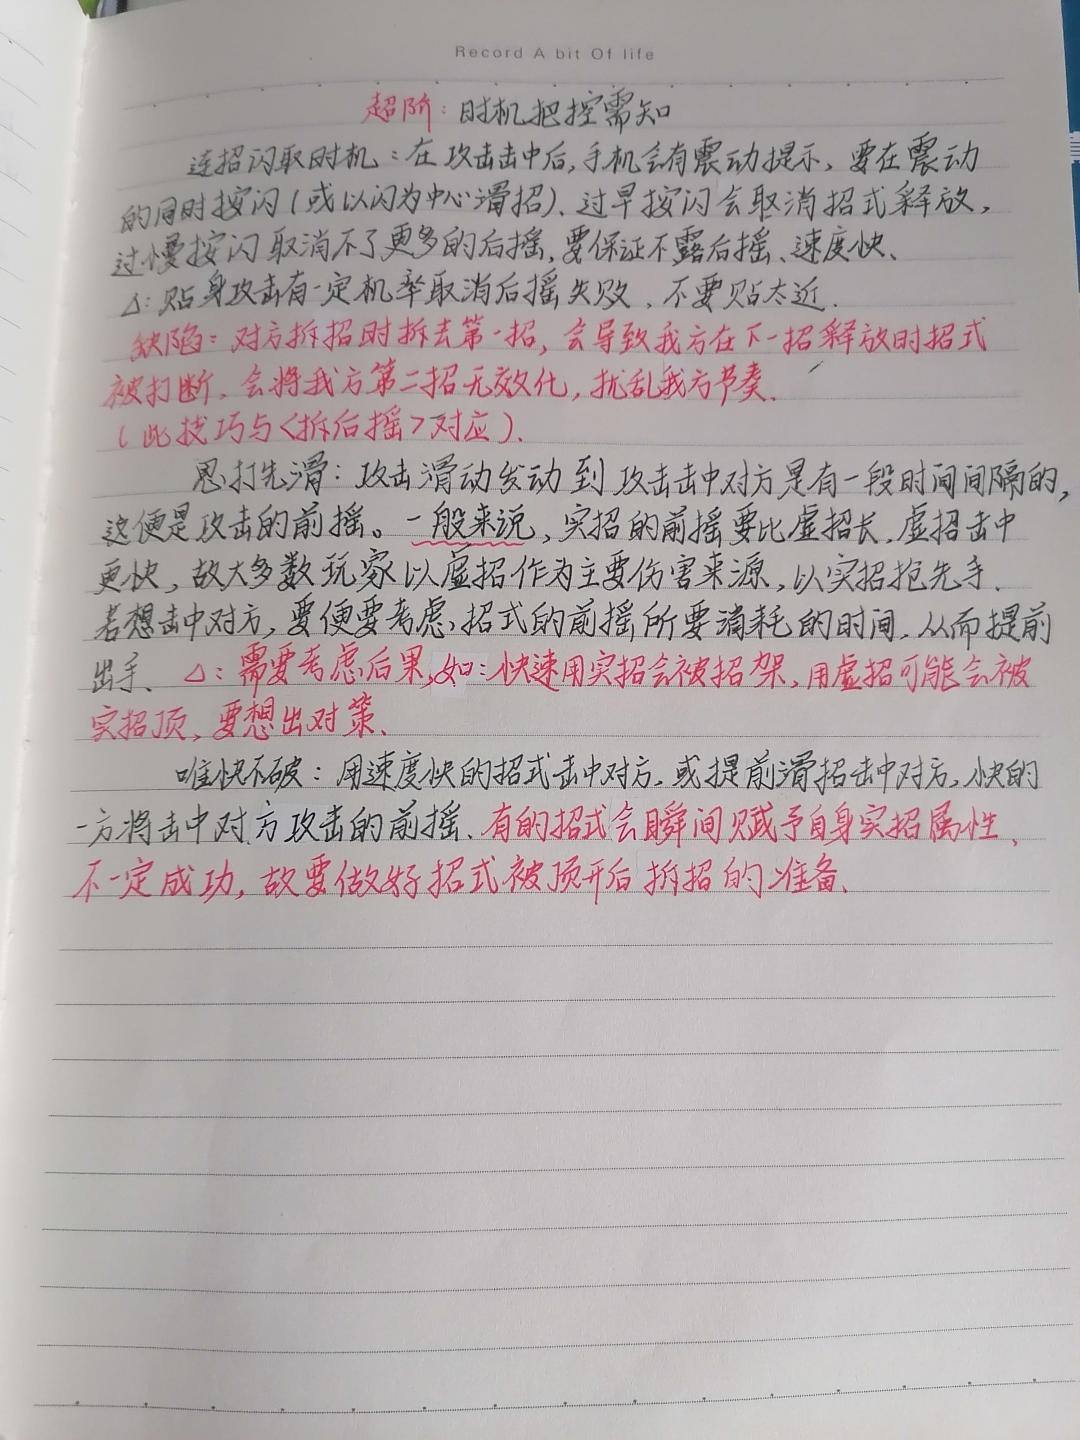 Record A bit Of life
超阶：时机把控需知
连招闪取时机：在攻击击中后，手机会有震动提示，要在震动
的同时按闪（或以闪为中心滑招）、过早按闪会取消招式释放，
过慢按闪取消不了更多的后摇，要保证不露后摇、速度快、
△：贴身攻击有一定机率取消后摇失败、不要贴太近.
缺陷：对方拆招时拆去第一招，会导致我方在下一招释放时招式
被打断、会将我方第二招无效化，扰乱我方节奏、
（此技巧与<拆后摇>对应）、
思打先滑：攻击滑动发动到攻击击中对方是有一段时间间隔的，
这便是攻击的前摇。一般来说，实招的前摇要比虚招长，虚招击中
更快，故大多数玩家以虚招作为主要伤害来源，以实招抢先手、
若想击中对方，要便要考虑、招式的前摇所要消耗的时间、从而提前
出手、△：需要考虑后果，如：快速用实招会被招架，用虚招可能会被
实招顶，要想出对策、
唯快不破：用速度快的招式击中对方、或提前滑招击中对方，快的
一方将击中对方攻击的前摇、有的招式会瞬间赋予自身实招属性、
不一定成功，故要做好招式被顶开后拆招的准备、